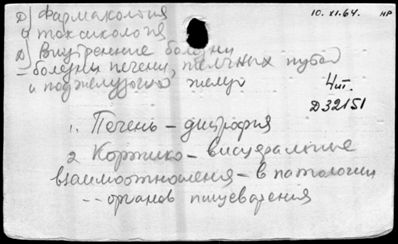 д) Фармакология 10. XI. 64. НР
и токсикология
д) Внутренние болезни
- болезни печени, желчных путей
и поджелудочной железы
Чит.
Д32151
1. Печень - дистрофия
2 Кортико - висцеральные
взаимоотношения - в патологии
-- органов пищеварения